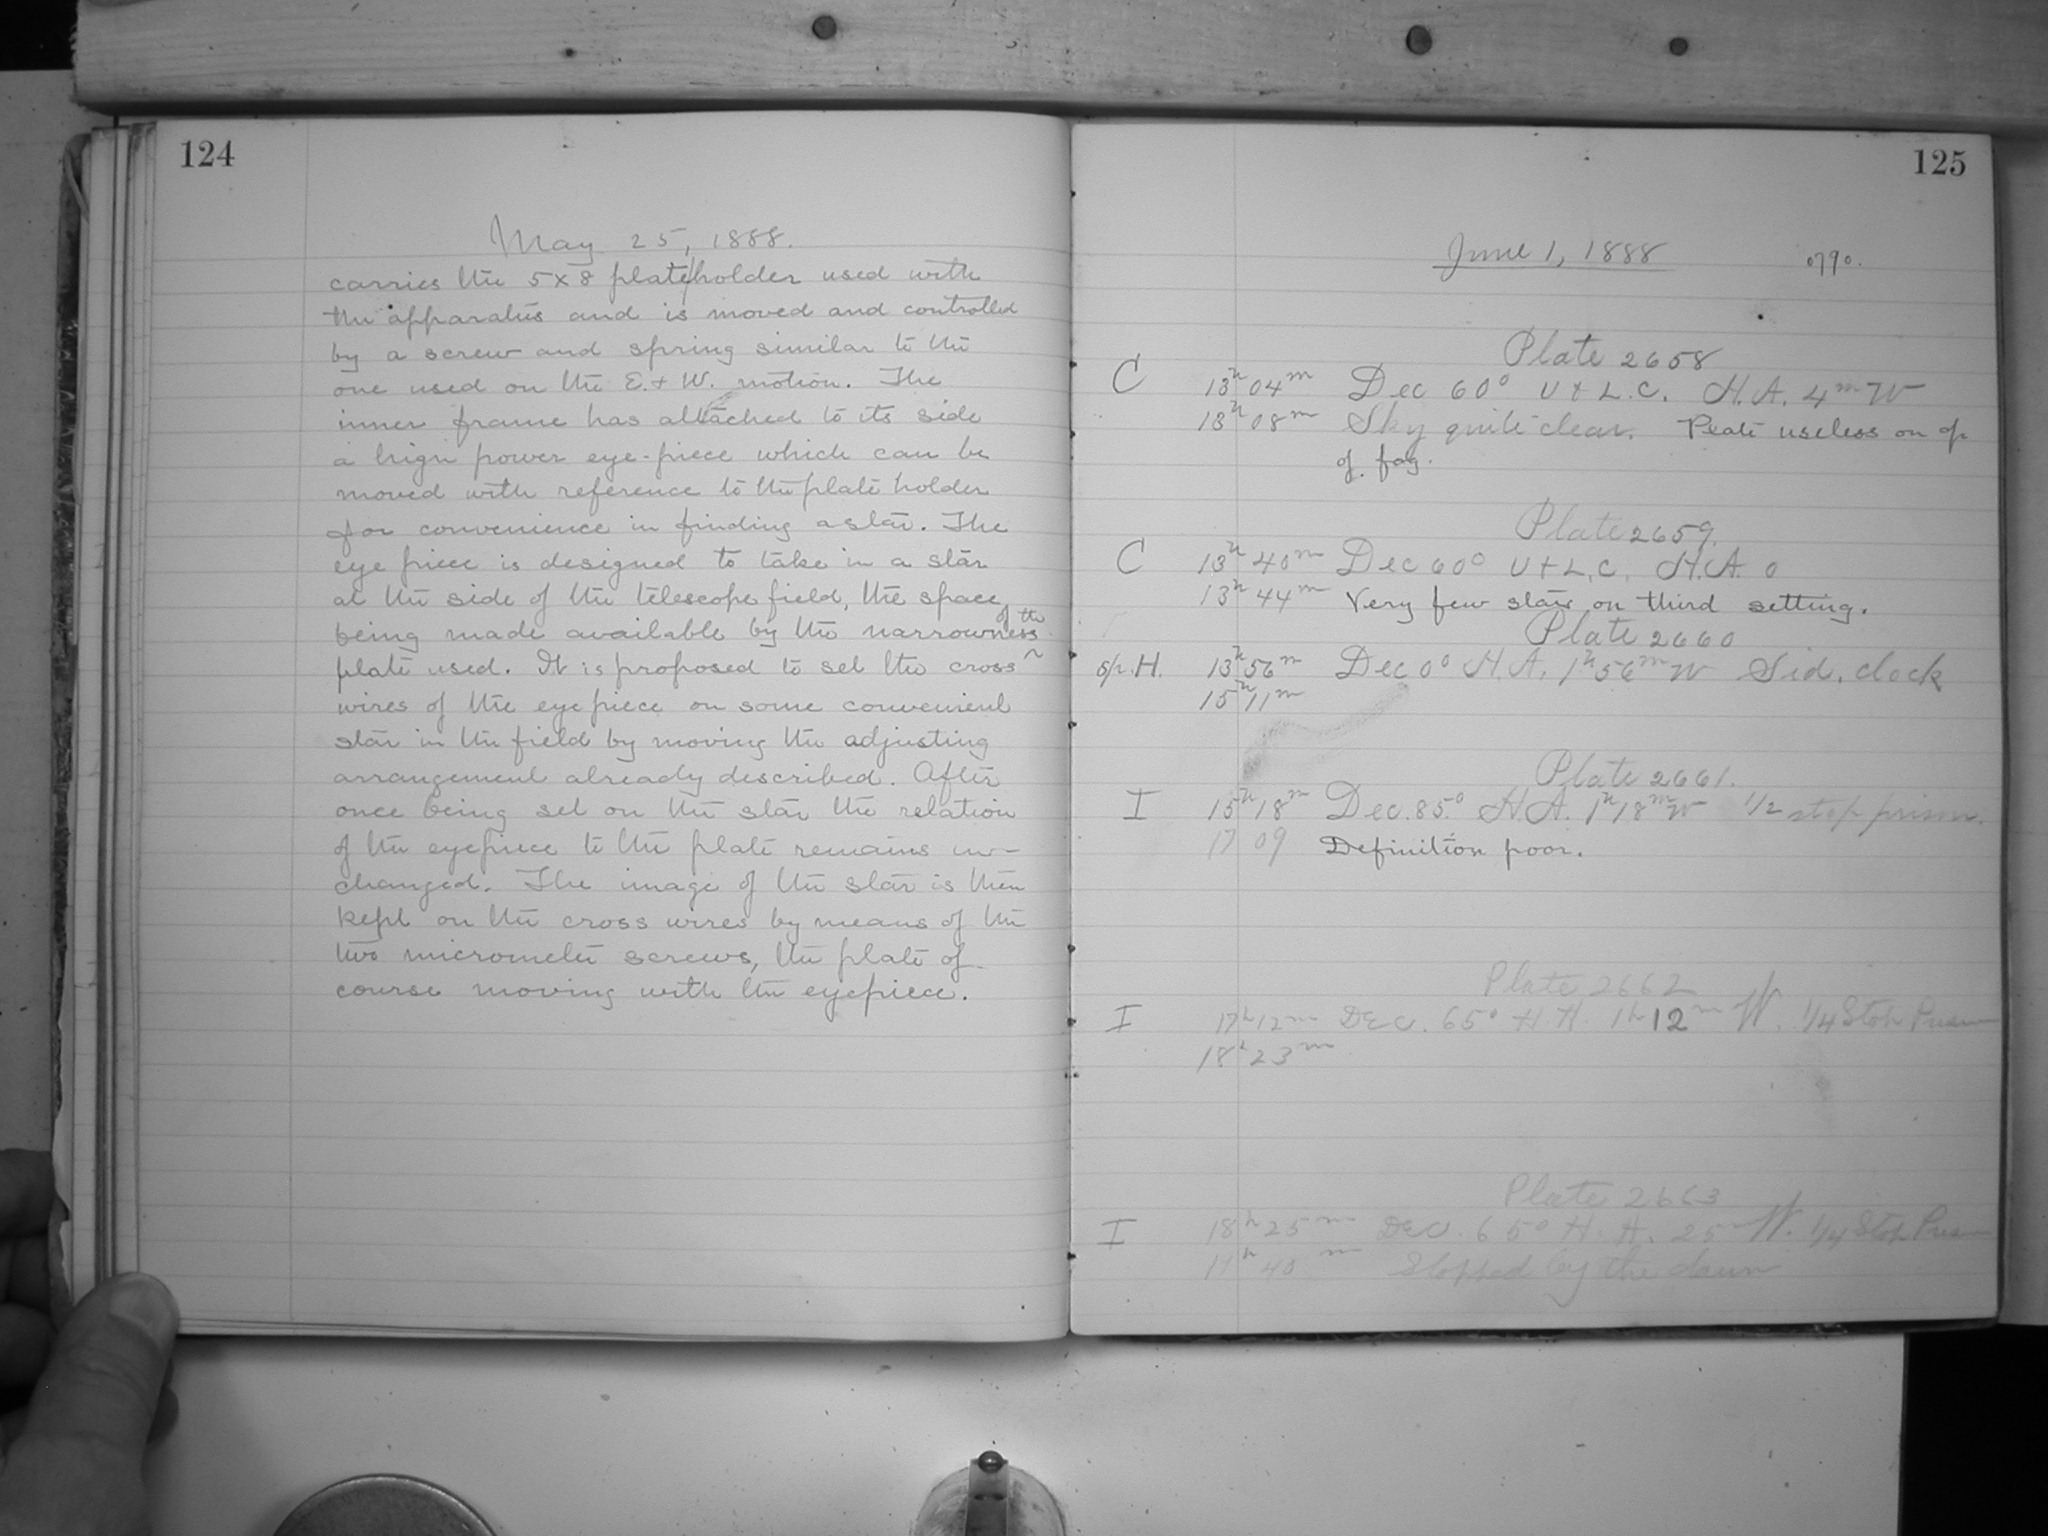 124
May 25, 1888.
carries the 5x8 plate holder used with
the apparatus and is moved and controlled
by a screw and spring similar to the
one used on the E. & W. motion. The
inner frame has attached to its side
a high power eye-piece which can be
moved with reference to the plate holder
for convenience in finding a star. The
eye piece is designed to take in a star
at the side of the telescope field, the space
being made available by the narrowness of the
plate used. It is proposed to set the cross
wires of the eyepiece on some convenient
star in the field by moving the adjusting
arrangement already described. After
once being set on the star the relation
of the eyepiece to the plate remains un-
changed. The image of the star is then
kept on the cross wires by means of the
two micrometer screws, the plate of
course moving with the eyepiece.
125
June 1, 1888 0790.
Plate 2658
C 13h 04m Dec 60° U & L.C. H.A. 4m W
13h 08m Sky quite clear. Plate useless on
of fog.
Plate 2659.
C 13h 40m Dec 60° U & L.C. H.A. 0
13h 44m Very few stars on third setting.
Plate 2660
Sp. H. 13h 56m Dec 0° H.A. 1h 56m W Sid. clock
15h 11m
Plate 2661.
I 15h 18m Dec. 85° H.A. 1h 18m W 1/2 stop prism.
17 09 Definition poor.
Plate 2662
I 17h 12m Dec. 65° H A 1h 12m W. 1/4 Stop Prism
18h 23m
Plate 2663
I 18h 25m Dec. 65° H. A. 25m W. 1/4 Stop Prism
19h 40m Stopped by the dawn